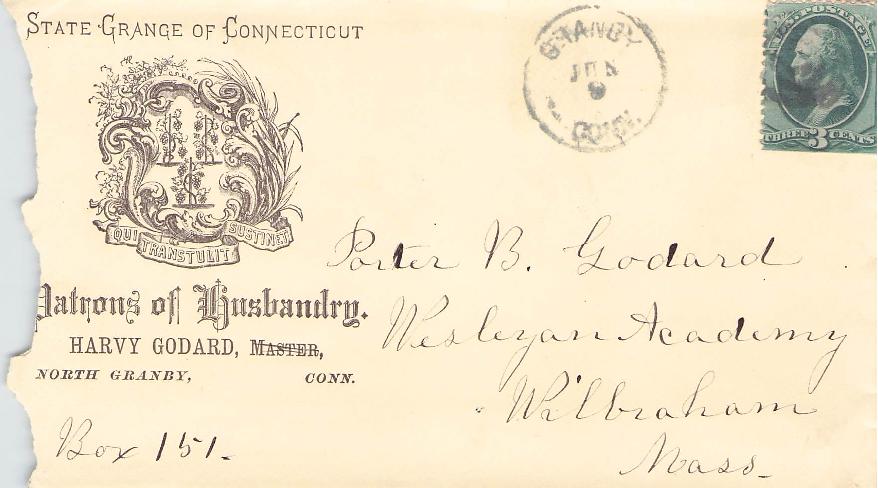 STATE GRANGE OF CONNECTICUT
QUI TRANSTULIT SUSTINET
Patrons of Husbandry.
HARVY GODARD, MASTER,
NORTH GRANBY, CONN.
Box 151.
GRANBY
JUN
9
CONN.
U.S. POSTAGE
THREE 3 CENTS
Porter B. Godard
Wesleyan Academy
Wilbraham
Mass.